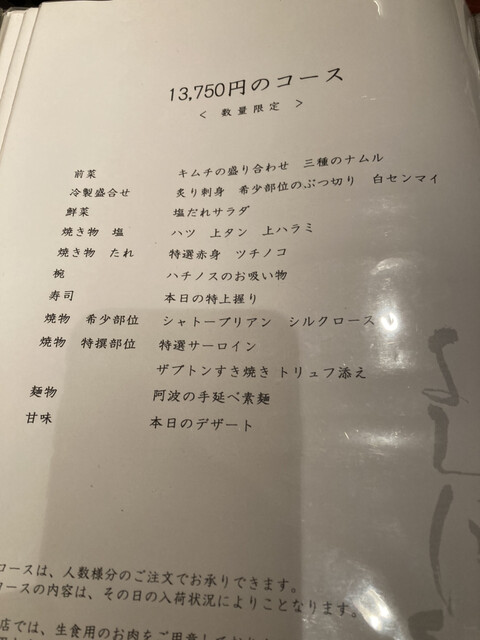 13,750円のコース
< 数量限定 >
前菜 キムチの盛り合わせ 三種のナムル
冷製盛合せ 炙り刺身 希少部位のぶつ切り 白センマイ
鮮菜 塩だれサラダ
焼き物 塩 ハツ 上タン 上ハラミ
焼き物 たれ 特選赤身 ツチノコ
椀 ハチノスのお吸い物
寿司 本日の特上握り
焼物 希少部位 シャトーブリアン シルクロース
焼物 特撰部位 特選サーロイン
ザブトンすき焼き トリュフ添え
麺物 阿波の手延べ素麺
甘味 本日のデザート
コースは、人数様分のご注文でお承りできます。
コースの内容は、その日の入荷状況によりことなります。
店では、生食用のお肉をご用意しており